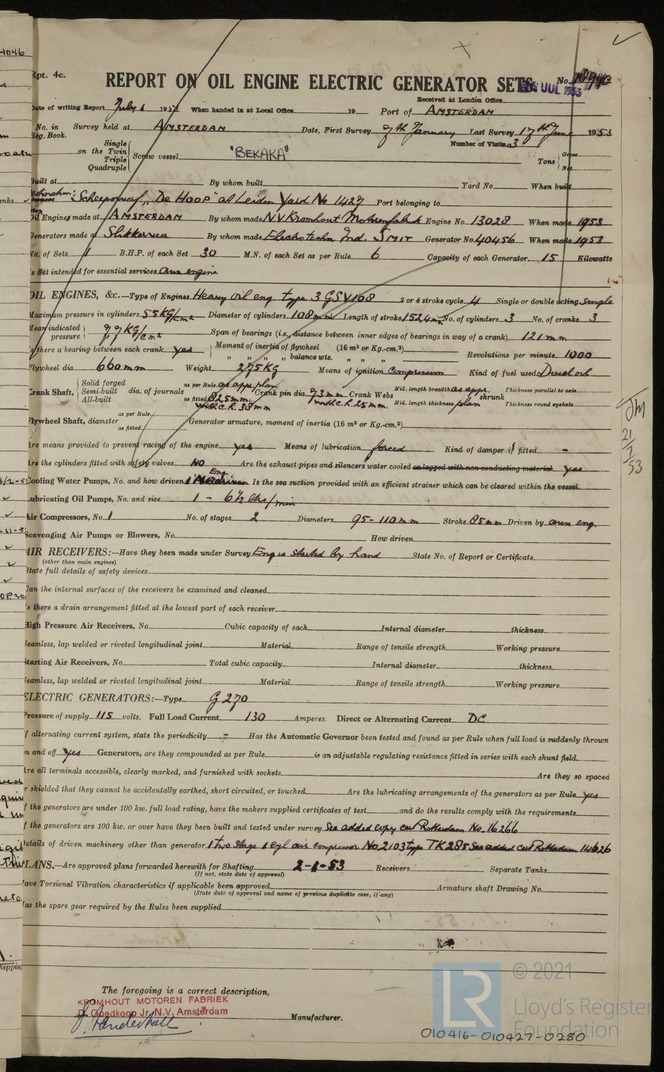 Rpt. 4c.
REPORT ON OIL ENGINE ELECTRIC GENERATOR SETS
No.
JUL 1953
Received at London Office
Date of writing Report July 6 1953 When handed in at Local Office 19 Port of AMSTERDAM
No. in Reg. Book. Survey held at AMSTERDAM Date, First Survey 9th January Last Survey 17th June 1953
Number of Visits 3
on the Single Twin Triple Quadruple Screw vessel "BEKAKA" Tons Gross Net
Built at By whom built Yard No. When built
Scheepswerf "De HOOP" at Leiden Yard No 1427 Port belonging to
Oil Engines made at AMSTERDAM By whom made N.V. Kromhout Motorenfabriek Engine No. 13028 When made 1953
Generators made at Slikkerveer By whom made Electrotechn Ind. SMIT Generator No. 40456 When made 1953
No. of Sets 1 B.H.P. of each Set 30 M.N. of each Set as per Rule 6 Capacity of each Generator 15 Kilowatts
Is Set intended for essential services
OIL ENGINES, &c.—Type of Engines Heavy oil eng. type 3 GSV108 2 or 4 stroke cycle 4 Single or double acting Single
Maximum pressure in cylinders 55 KG/cm² Diameter of cylinders 108 mm Length of stroke 152,4 mm No. of cylinders 3 No. of cranks 3
Mean indicated pressure 7,7 KG/cm² Span of bearings (i.e., distance between inner edges of bearings in way of a crank) 121 mm
Is there a bearing between each crank yes Moment of inertia of flywheel (16 m² or Kg.-cm.²)
" " " balance wts. " " " Revolutions per minute 1000
Flywheel dia. 660 mm Weight 275 KG Means of ignition Compression Kind of fuel used Diesel oil
Crank Shaft, Solid forged Semi-built All-built dia. of journals as per Rule as app. plan as fitted 82.5 mm with C.R. 38 mm Crank pin dia 73 mm with C.R. 25 mm Crank Webs Mid. length breadth as appr. Mid. length thickness plan shrunk Thickness parallel to axis Thickness round eyehole
Flywheel Shaft, diameter as per Rule as fitted Generator armature, moment of inertia (16 m² or Kg.-cm.²)
Are means provided to prevent racing of the engine yes Means of lubrication forced Kind of damper if fitted -
Are the cylinders fitted with safety valves NO Are the exhaust pipes and silencers water cooled or lagged with non-conducting material yes
Cooling Water Pumps, No. and how driven 1 Eng. driven Is the sea suction provided with an efficient strainer which can be cleared within the vessel
Lubricating Oil Pumps, No. and size 1 - 6½ lbs/min
Air Compressors, No. 1 No. of stages 2 Diameters 95-110 mm Stroke 85 mm Driven by own eng.
Scavenging Air Pumps or Blowers, No. How driven
AIR RECEIVERS:—Have they been made under Survey Eng is started by hand State No. of Report or Certificate
(other than main engines)
State full details of safety devices
Can the internal surfaces of the receivers be examined and cleaned
Is there a drain arrangement fitted at the lowest part of each receiver
High Pressure Air Receivers, No. Cubic capacity of each Internal diameter thickness
Seamless, lap welded or riveted longitudinal joint Material Range of tensile strength Working pressure
Starting Air Receivers, No. Total cubic capacity Internal diameter thickness
Seamless, lap welded or riveted longitudinal joint Material Range of tensile strength Working pressure
ELECTRIC GENERATORS:—Type G 270
Pressure of supply 115 volts. Full Load Current 130 Amperes. Direct or Alternating Current DC
If alternating current system, state the periodicity - Has the Automatic Governor been tested and found as per Rule when full load is suddenly thrown
on and off Yes Generators, are they compounded as per Rule is an adjustable regulating resistance fitted in series with each shunt field
Are all terminals accessible, clearly marked, and furnished with sockets Are they so spaced
or shielded that they cannot be accidentally earthed, short circuited, or touched Are the lubricating arrangements of the generators as per Rule yes
If the generators are under 100 kw. full load rating, have the makers supplied certificates of test and do the results comply with the requirements
If the generators are 100 kw. or over have they been built and tested under survey See added copy cert Rotterdam No. 16266
Details of driven machinery other than generator 1 two stage 1 cyl air compressor No 2103 type TK 285 See added cert Rotterdam 14626
PLANS.—Are approved plans forwarded herewith for Shafting 2-1-53 Receivers Separate Tanks
(If not, state date of approval)
Have Torsional Vibration characteristics if applicable been approved Armature shaft Drawing No.
(State date of approval and name of previous duplicate case, if any)
Has the spare gear required by the Rules been supplied
The foregoing is a correct description,
KROMHOUT MOTOREN FABRIEK
D. Goedkoop Jr. N.V. Amsterdam
Manufacturer.
21
53
LR
© 2021
Lloyd's Register
Foundation
010416-010427-0280